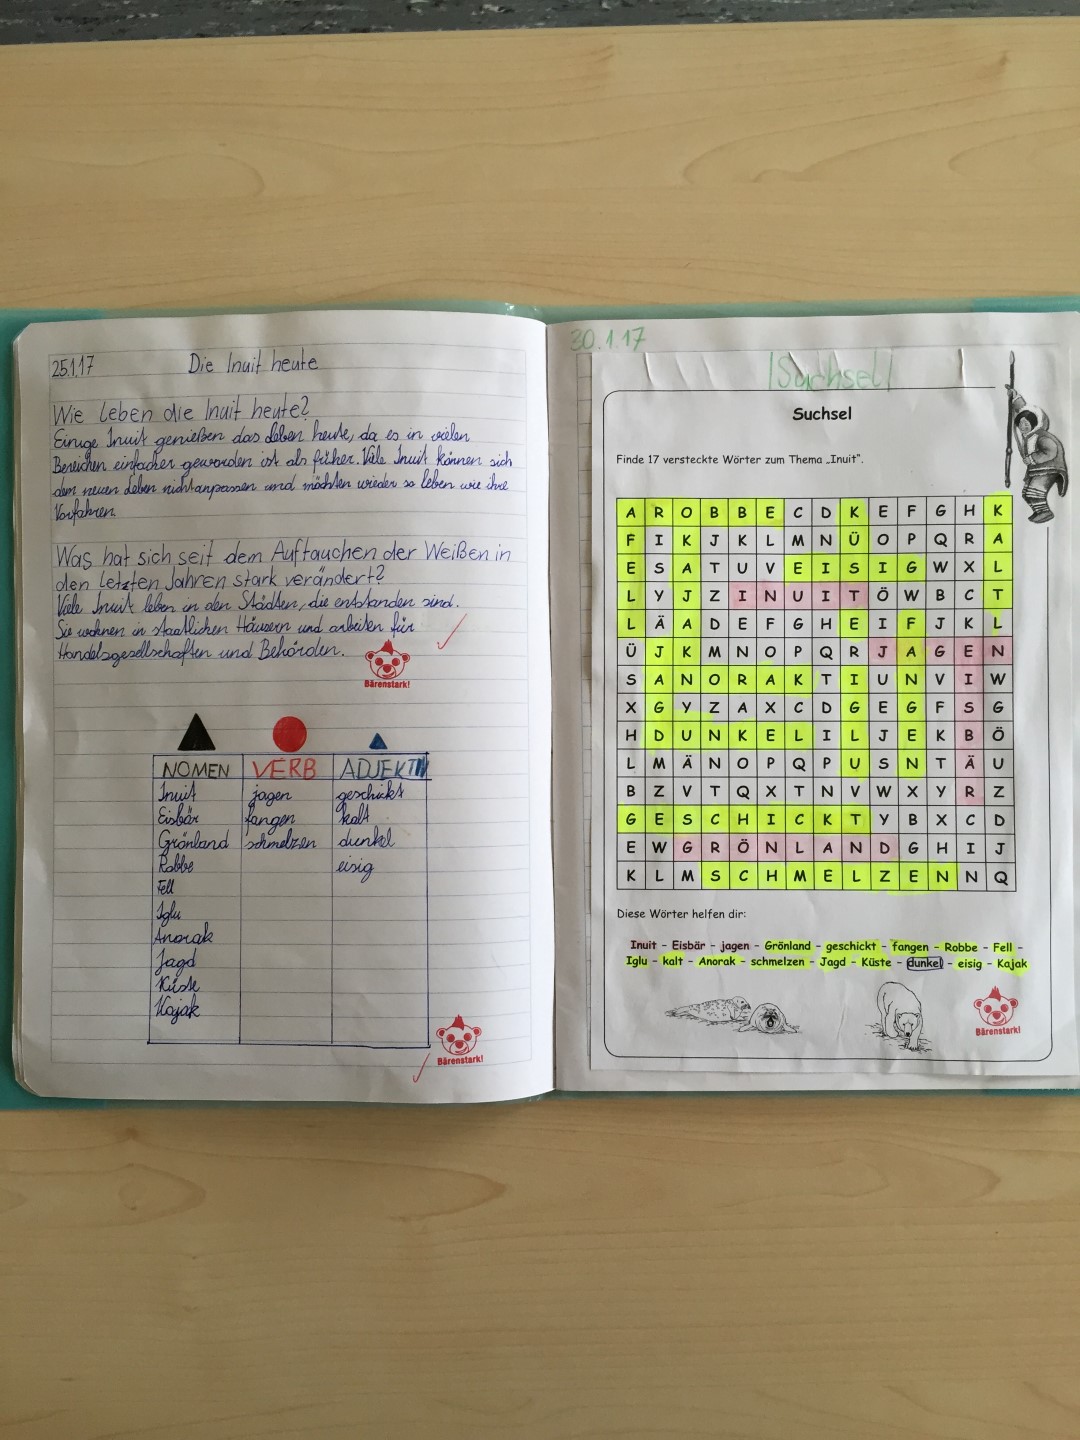 25.1.17 Die Inuit heute
Wie leben die Inuit heute?
Einige Inuit genießen das Leben heute, da es in vielen
Bereichen einfacher geworden ist als früher. Viele Inuit können sich
dem neuen Leben nicht anpassen und möchten wieder so leben wie ihre
Vorfahren.
Was hat sich seit dem Auftauchen der Weißen in
den letzten Jahren stark verändert?
Viele Inuit leben in den Städten, die entstanden sind.
Sie wohnen in staatlichen Häusern und arbeiten für
Handelsgesellschaften und Behörden.
Bärenstark!
NOMEN VERB ADJEKTIV
Inuit jagen geschickt
Eisbär fangen kalt
Grönland schmelzen dunkel
Robbe eisig
Fell
Iglu
Anorak
Jagd
Küste
Kajak
Bärenstark!
30.1.17
Suchsel
Suchsel
Finde 17 versteckte Wörter zum Thema „Inuit“.
A R O B B E C D K E F G H K
F I K J K L M N Ü O P Q R A
E S A T U V E I S I G W X L
L Y J Z I N U I T Ö W B C T
L Ä A D E F G H E I F J K L
Ü J K M N O P Q R J A G E N
S A N O R A K T I U N V I W
X G Y Z A X C D G E G F S G
H D U N K E L I L J E K B Ö
L M Ä N O P Q P U S N T Ä U
B Z V T Q X T N V W X Y R Z
G E S C H I C K T Y B X C D
E W G R Ö N L A N D G H I J
K L M S C H M E L Z E N N Q
Diese Wörter helfen dir:
Inuit - Eisbär - jagen - Grönland - geschickt - fangen - Robbe - Fell -
Iglu - kalt - Anorak - schmelzen - Jagd - Küste - dunkel - eisig - Kajak
Bärenstark!